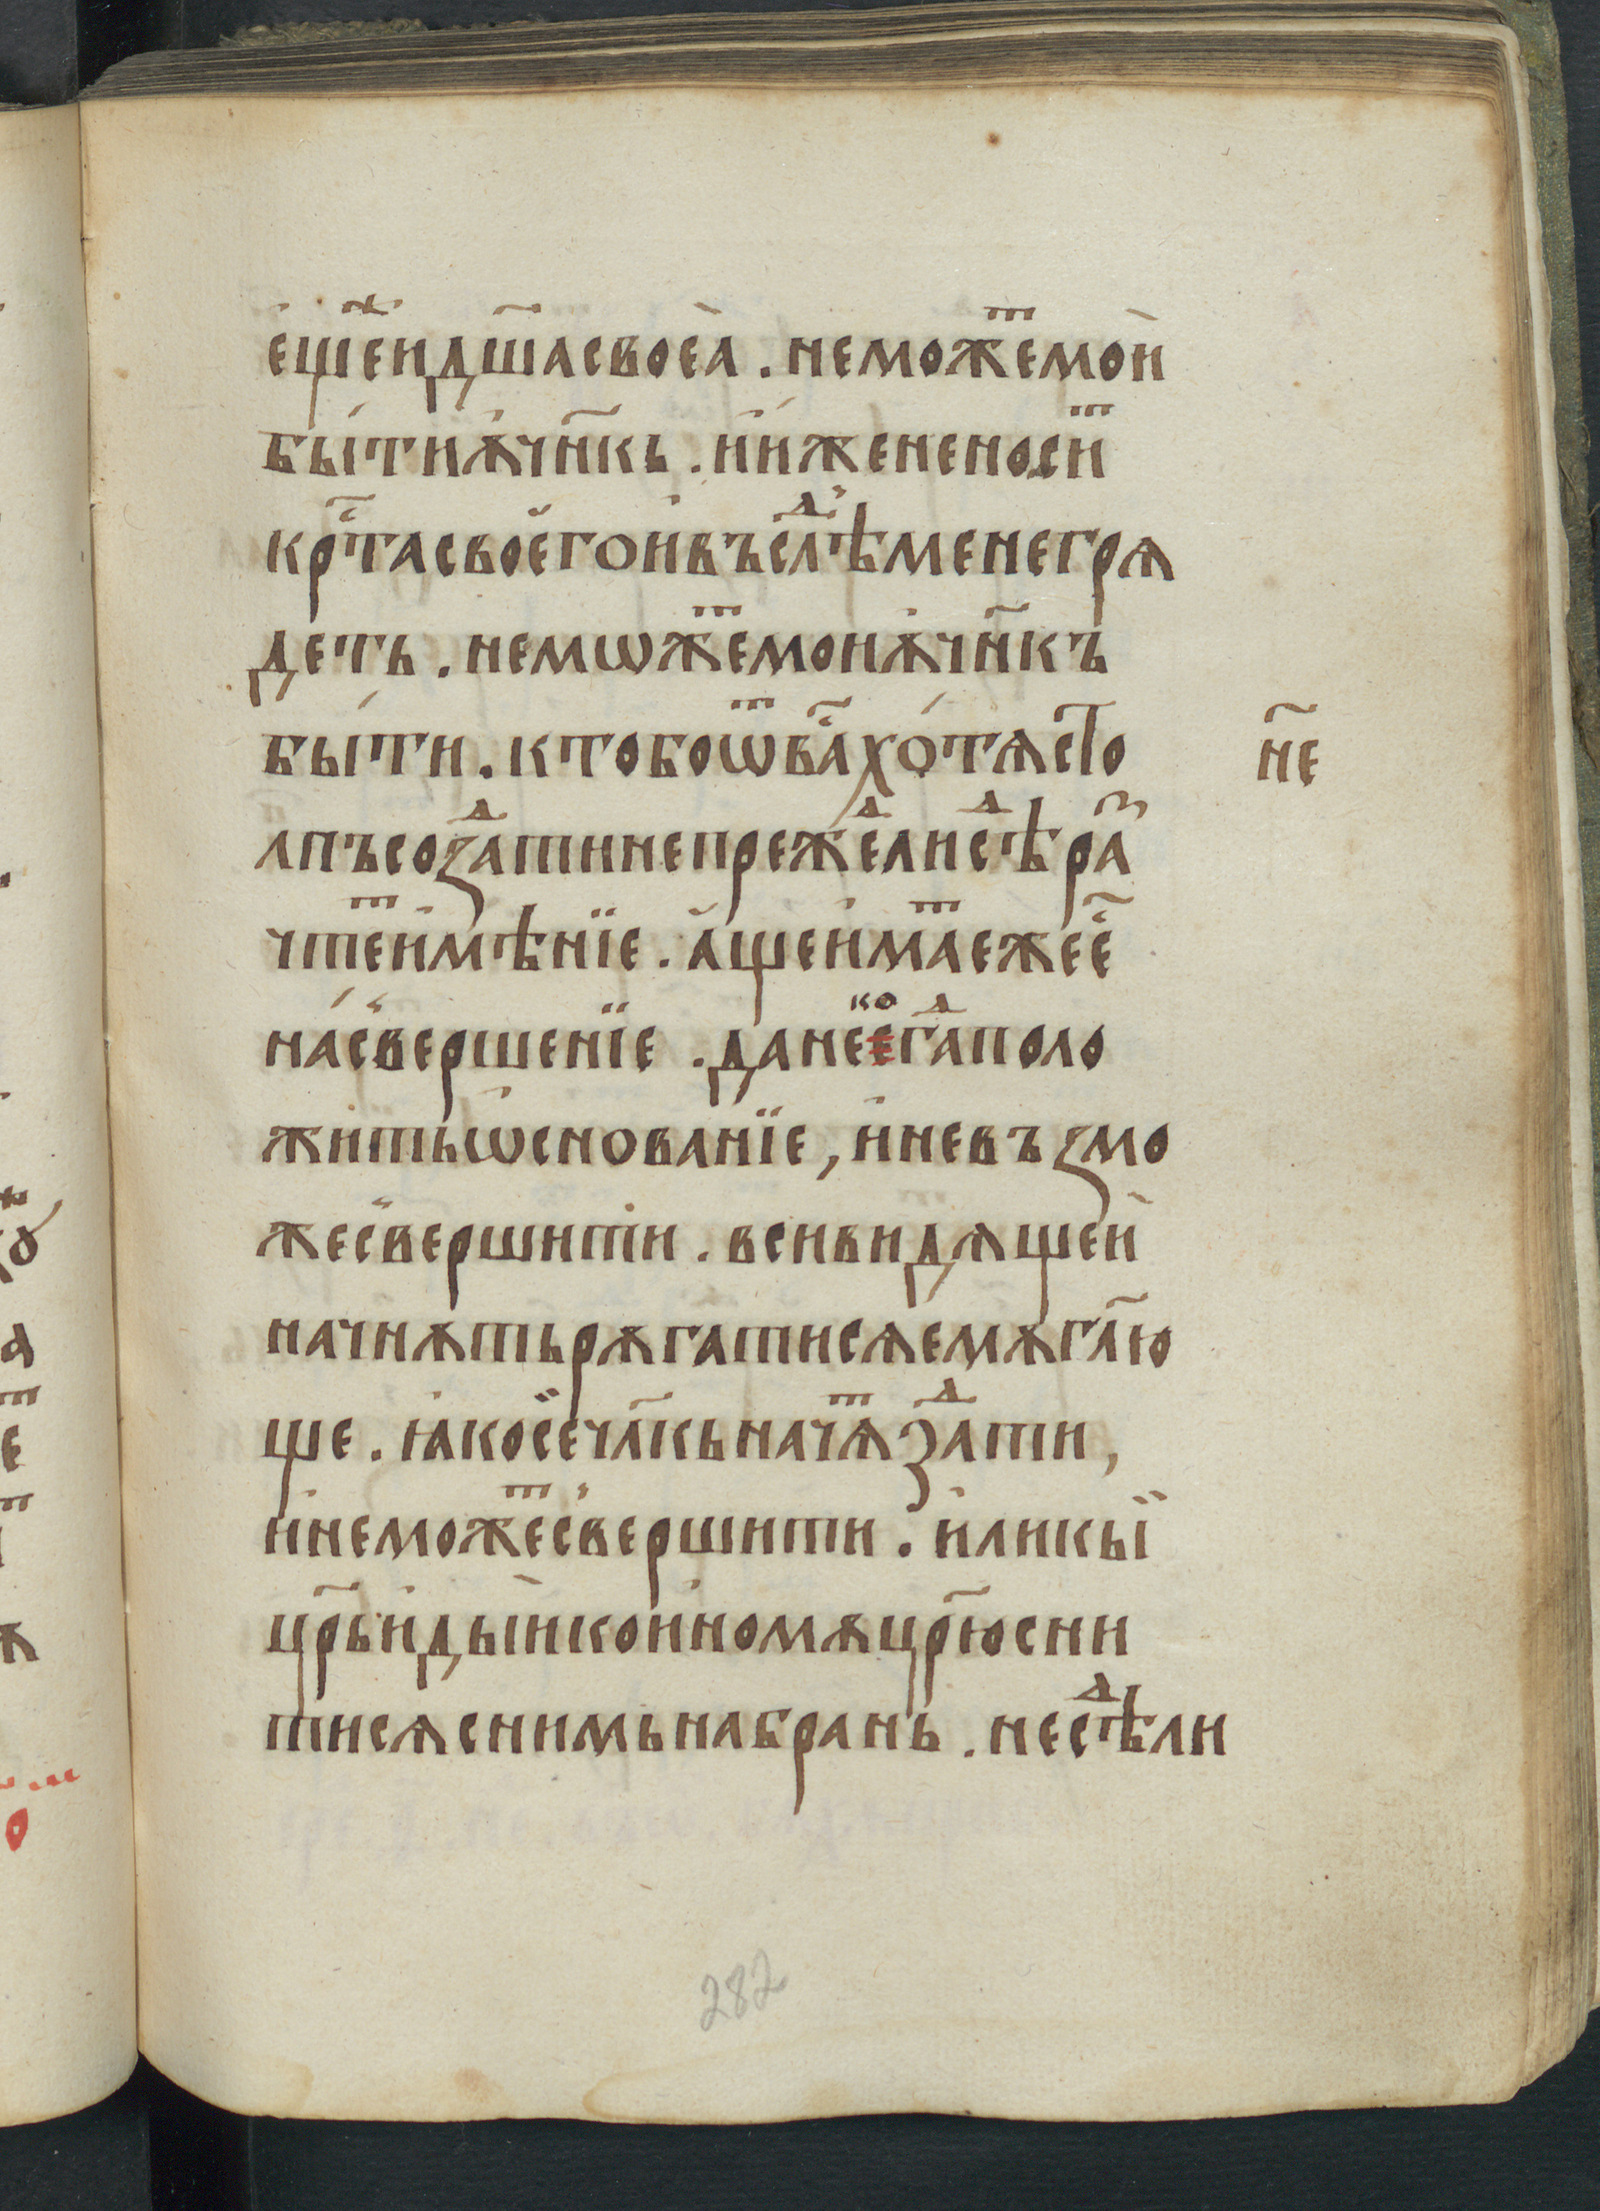 е҆ще́ⷤи҆дш҃асвоеа̀ . неможеⷮмо́и
бы́тиѫчн҃къ . и҆и́жененосиⷮ
крⷭ҇тасвоег҆ои҆въслѣⷣменегрѧ
деть . немѡжеⷮмоиѫчн҃къ
бы́ти . ктобоѿва҃ⷭхо́тѧсто не҃
лпъсоꙁаⷣтинепрежеⷣлисѣⷣра҃ꙁ
чтеⷮи҆мѣнїе . а҆щеи҆маⷮежее҃ⷭ
на́свершенїе . данеⷦ҇ое҆гаⷣполо
житьѡ҆снованїе , и҆невъꙁмо
жесвершити . всивидѧщеи
начнѫтьрѫгатисѧемѫгл҃ю
ще . ꙗкосечл҃кьначѧⷮꙁаⷣти ,
и҆неможеⷮсвершити . и҆ликыи
цр҃ьи҆дыикои҆номѫцр҃юсни
тисѧснимьнабрань . несѣⷣли
282